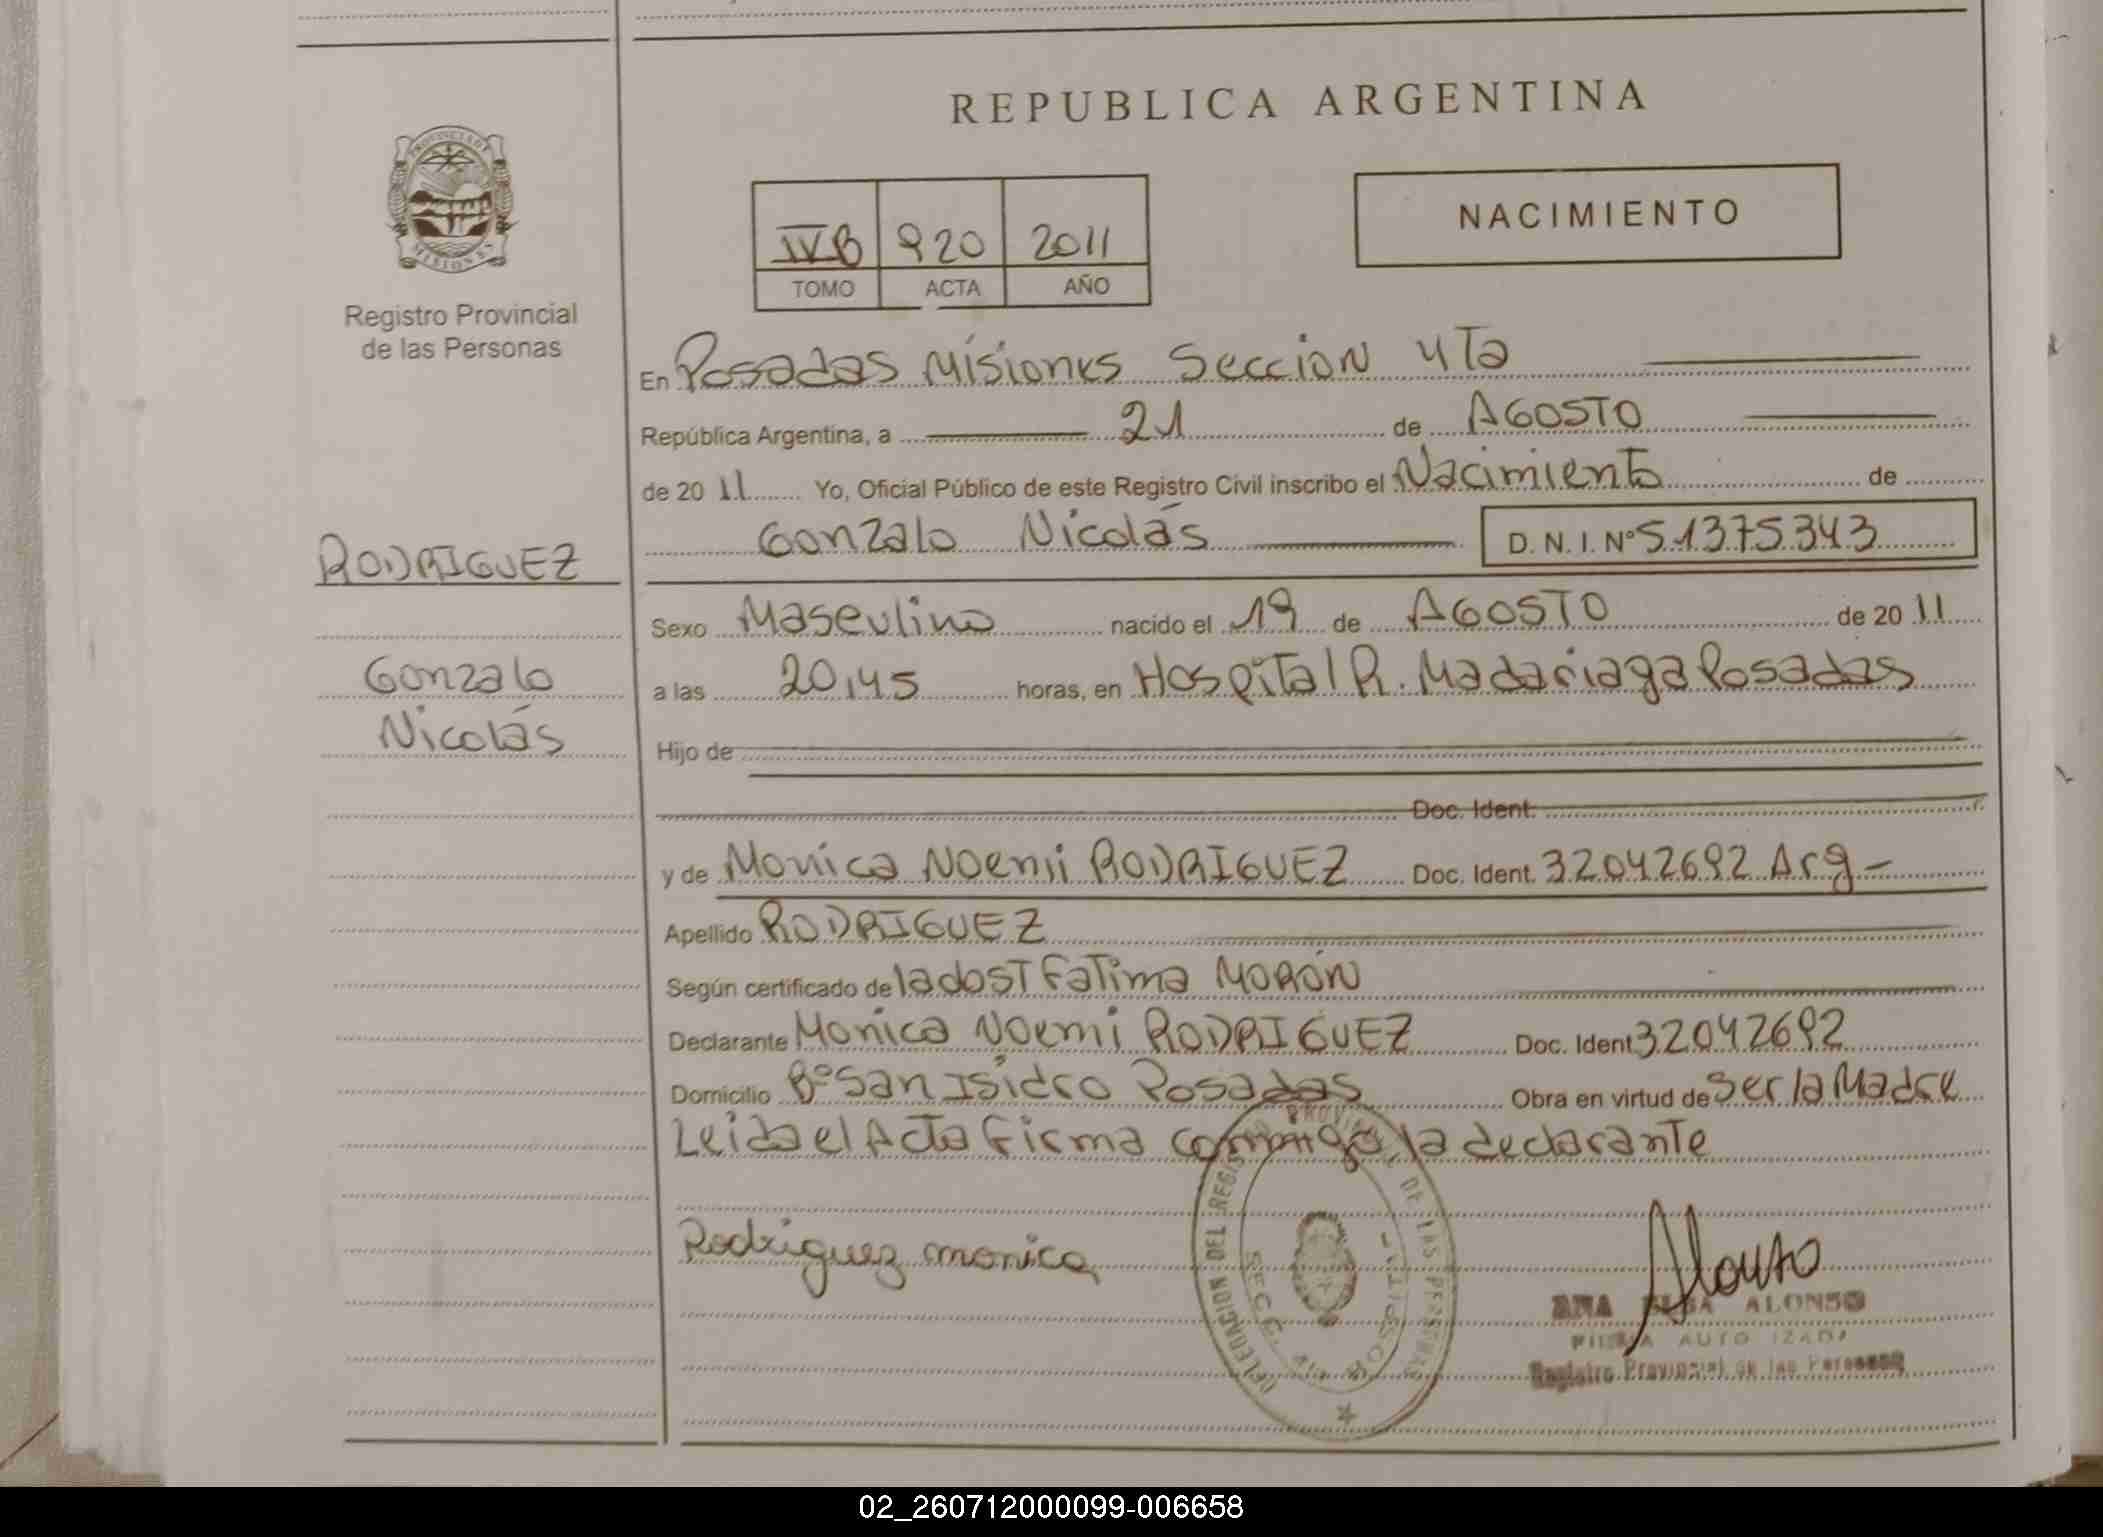 REPUBLICA ARGENTINA
PROVINCIA DE MISIONES
Registro Provincial
de las Personas
IVB 920 2011
TOMO ACTA AÑO
NACIMIENTO
En Posadas Misiones Seccion 4Ta
República Argentina, a 21 de AGOSTO
de 2011 Yo, Oficial Público de este Registro Civil inscribo el Nacimiento de
Gonzalo Nicolás D. N. I. Nº 51375343
RODRIGUEZ
Gonzalo
Nicolás
Sexo Masculino nacido el 19 de AGOSTO de 2011
a las 20,45 horas, en Hospital R. Madariaga Posadas
Hijo de
Doc. Ident.
y de Monica Noemi RODRIGUEZ Doc. Ident. 32042692 Arg-
Apellido RODRIGUEZ
Según certificado de la dosT FaTima MORÓN
Declarante Monica Noemi RODRIGUEZ Doc. Ident 32042692
Domicilio Bº San Isidro Posadas Obra en virtud de Ser la Madre
Leida el Acta Firma conmigo la declarante
Rodriguez monica
DELEGACION DEL REGISTRO PROVINCIAL DE LAS PERSONAS
SECC.
Alonso
ANA ALONSO
FIRMA AUTORIZADA
Registro Provincial de las Personas
02_260712000099-006658